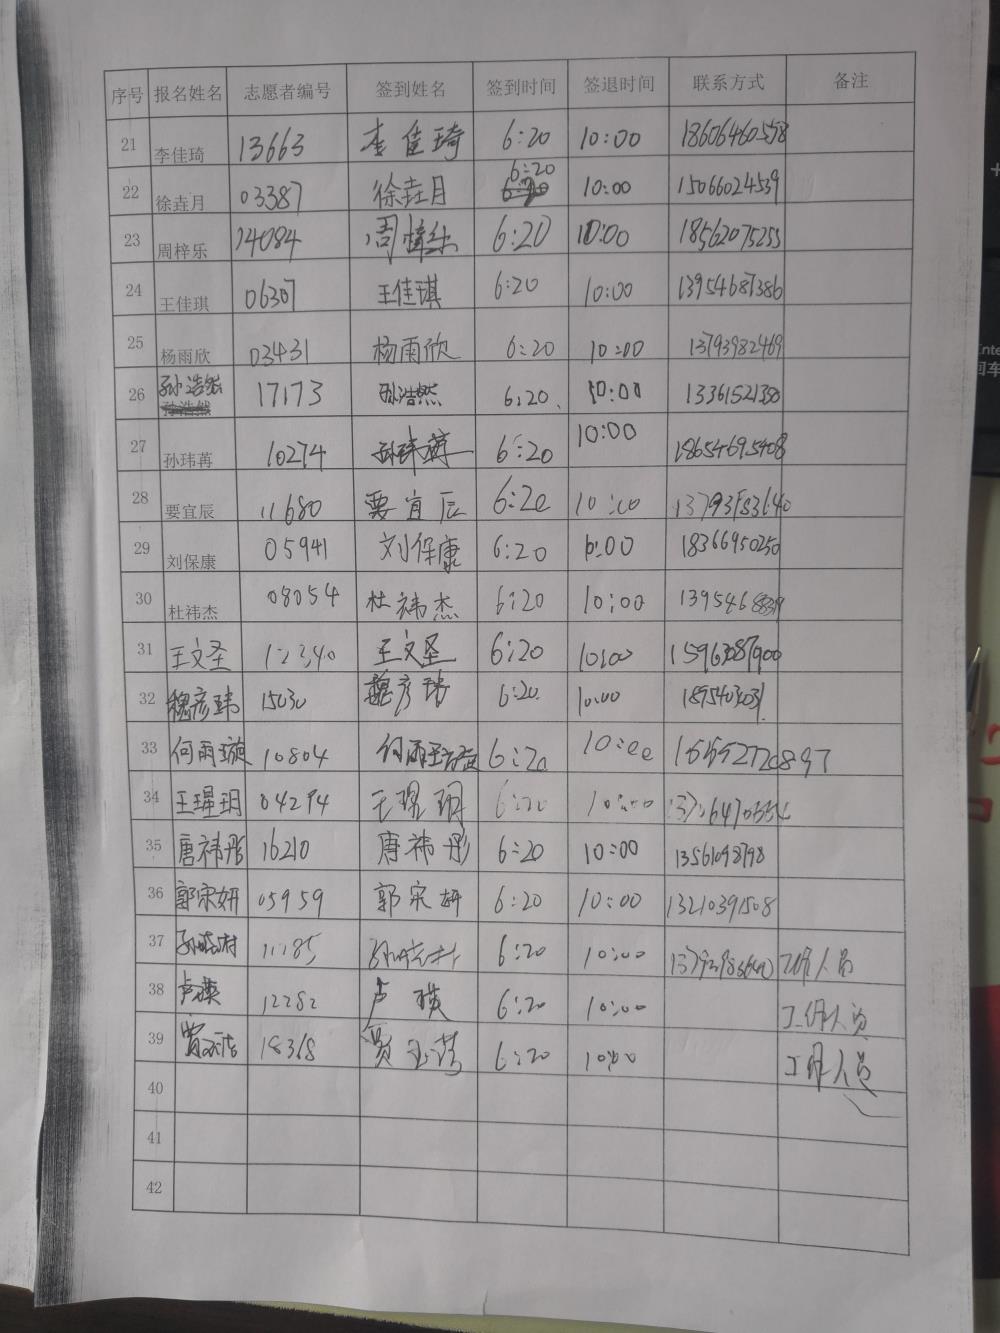 序号 报名姓名 志愿者编号 签到姓名 签到时间 签退时间 联系方式 备注
21 李佳琦 13663 李佳琦 6:20 10:00 18606460558
22 徐垚月 03387 徐垚月 6:20 10:00 15066024539
23 周梓乐 14084 周梓乐 6:20 10:00 18562075255
24 王佳琪 06307 王佳琪 6:20 10:00 13954687386
25 杨雨欣 03431 杨雨欣 6:20 10:00 13793982469
26 孙浩然 17173 孙浩然 6:20 10:00 13361521350
孙浩然
27 孙玮苒 10274 孙玮苒 6:20 10:00 18654695408
28 要宜辰 11680 要宜辰 6:20 10:00
29 刘保康 05941 刘保康 6:20 10:00 18366950250
30 杜祎杰 08054 杜祎杰 6:20 10:00
31 王文圣 12340 王文圣 6:20 10:00 15963087900
32 魏彦玮 15030 魏彦玮 6:20 10:00
33 何雨璇 10804 何雨璇 6:20 10:00 15552720897
34 王瑆玥 04294 王瑆玥 6:20 10:00
35 唐祎彤 16210 唐祎彤 6:20 10:00 13561098798
36 郭宋妍 05959 郭宋妍 6:20 10:00 13210391508
37 11185 6:20 10:00 工作人员
38 卢瑛 12282 卢瑛 6:20 10:00 工作人员
39 18368 6:20 10:00 工作人员
40
41
42